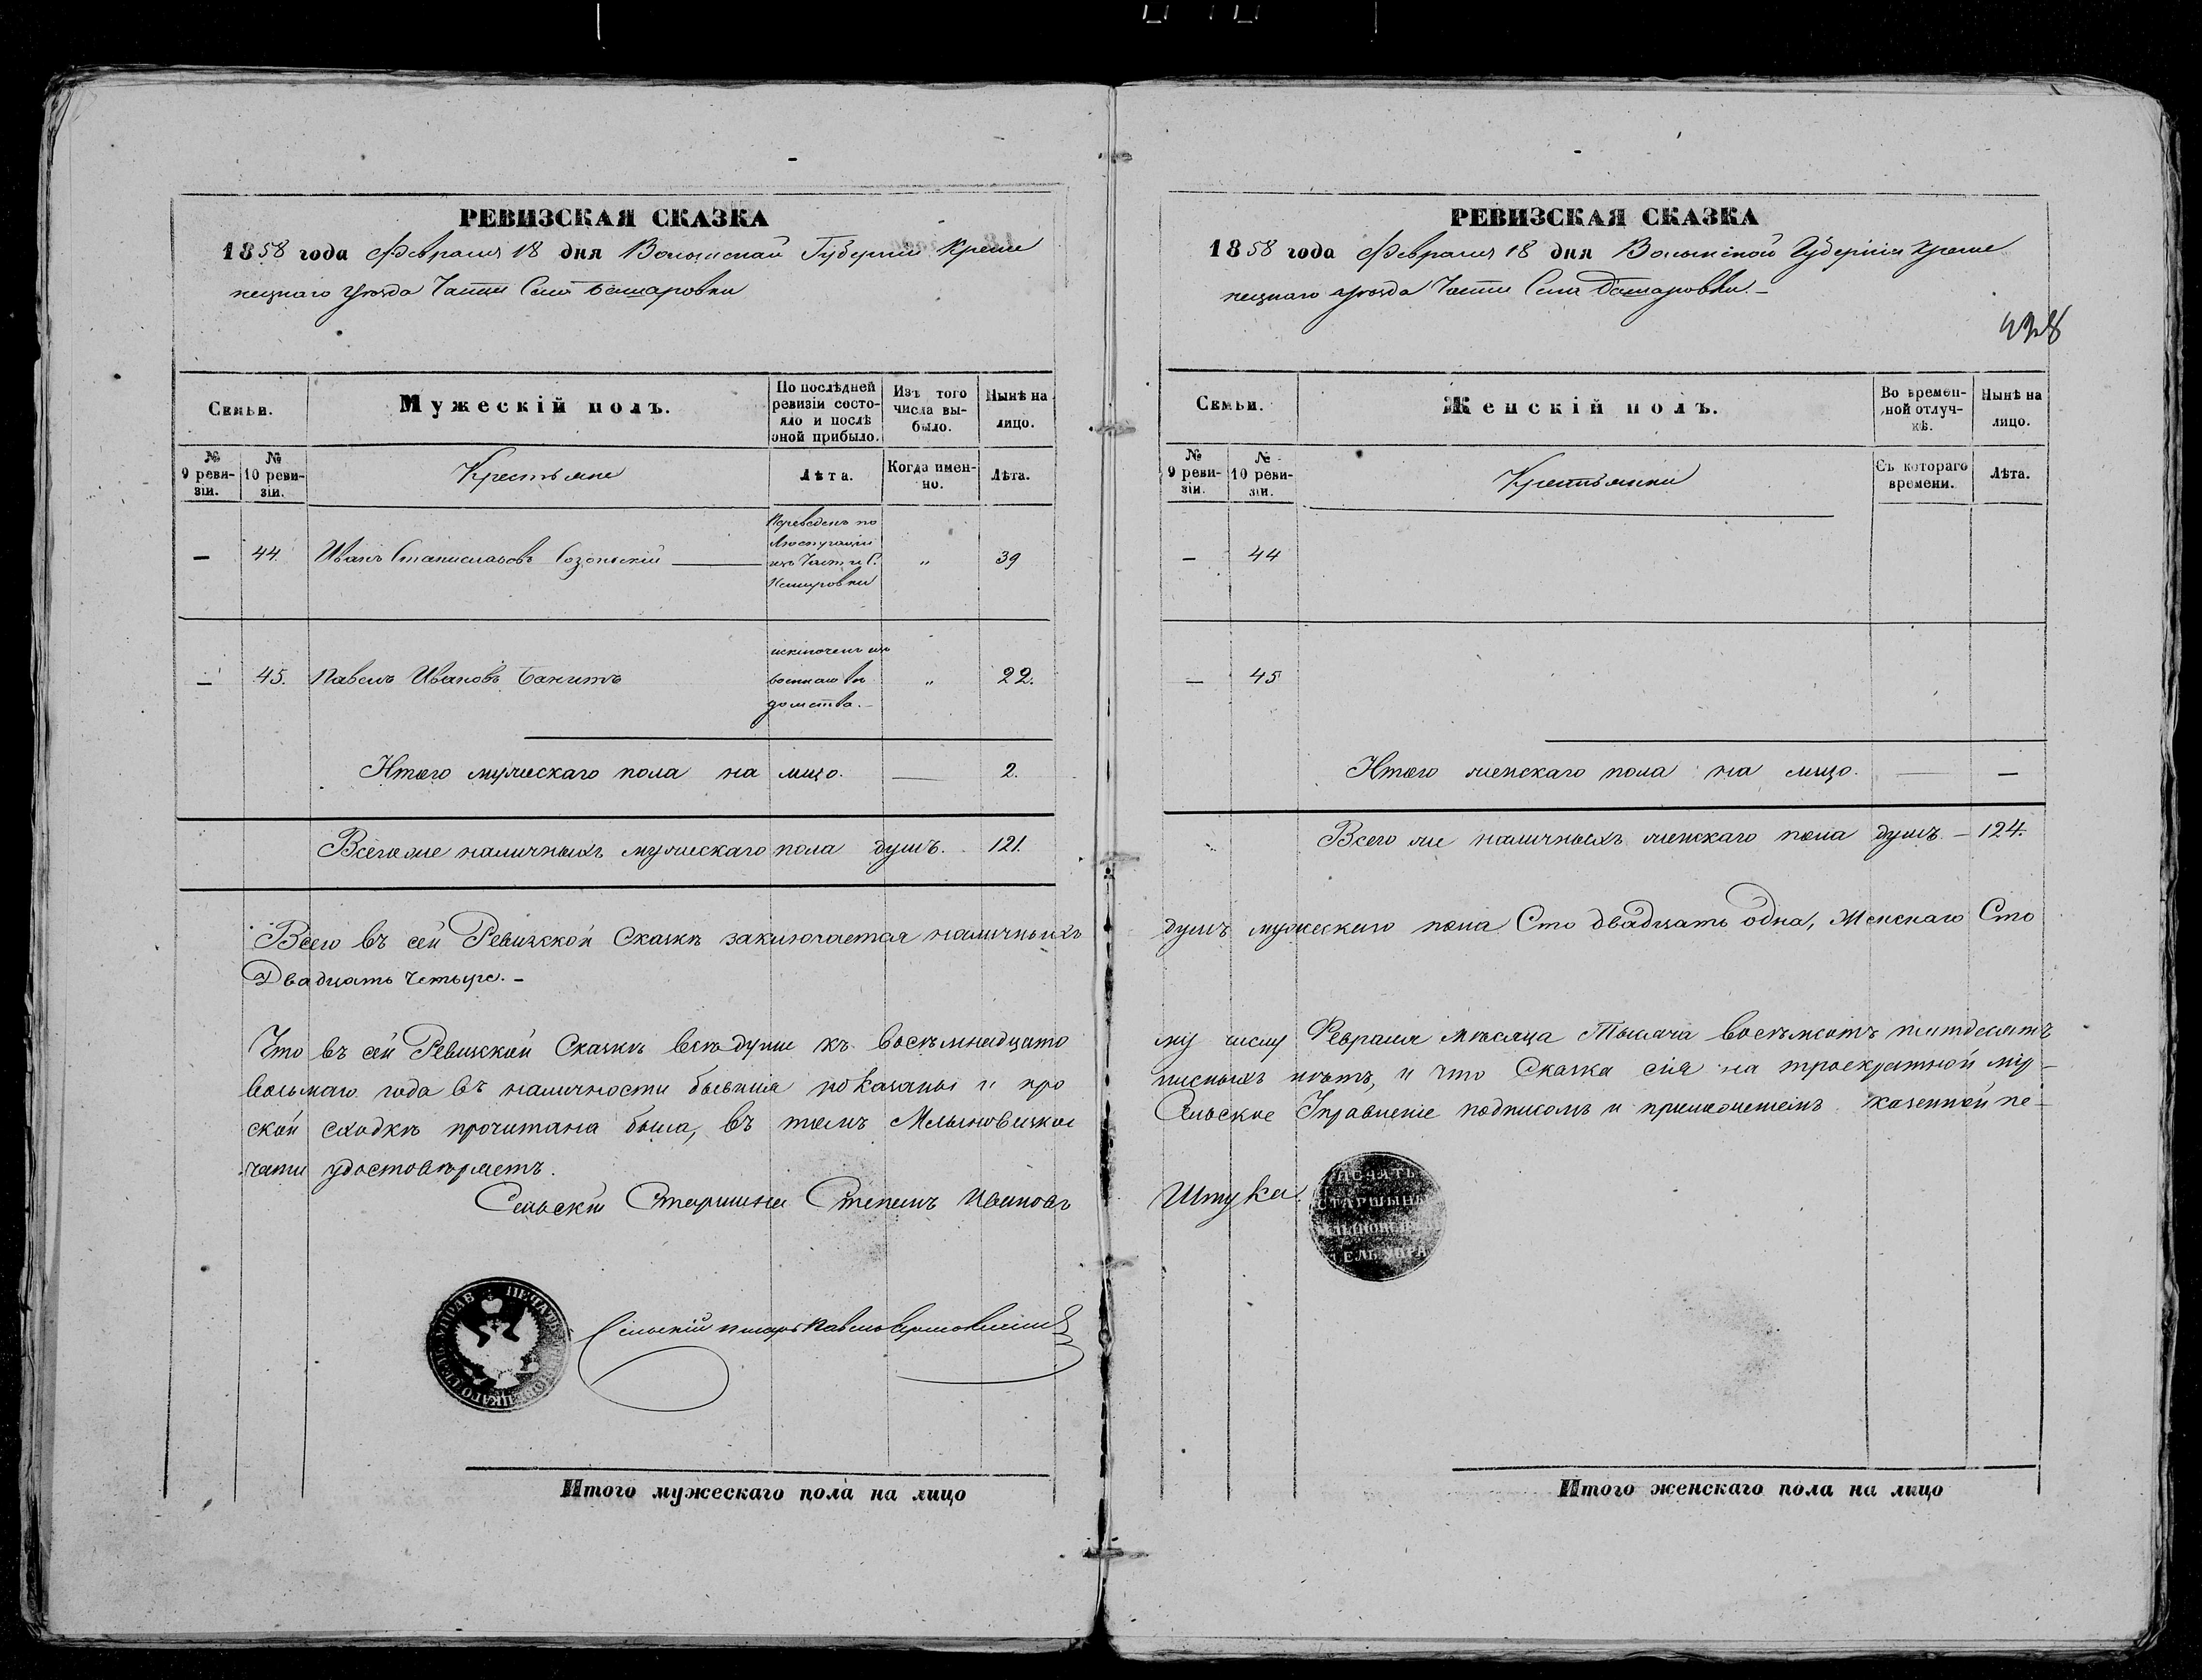 РЕВИЗСКАЯ СКАЗКА
1858 года Февраля 18 дня Волынской Губерніи Креме
нецкаго Уѣзда Части Села Башаровки
Семьи.
Мужескій полъ.
По послѣдней ревизіи состояло и послѣ оной прибыло.
Изъ того числа выбыло.
Нынѣ на лицо.
№ 9 ревизіи.
№ 10 ревизіи.
Крестьяне
Лѣта.
Когда именно.
Лѣта.
— 44. Иванъ Станиславовъ Созонскій " 39
Переведенъ по
Люстраціи
изъ Части С.
— 45. Павелъ Ивановъ " 22.
исключенъ изъ
военнаго вѣ
домства.
Итого мужескаго пола на лицо. — 2.
Всего же наличныхъ мужескаго пола душъ. 121.
Всего въ сей Ревизской Сказкѣ заключается наличныхъ
Двадцать Четыре. –
Что въ сей Ревизской Сказкѣ всѣ души къ восемьнадцато
восьмаго года въ наличности бывшія показаны и про
ской сходкѣ прочитана была, въ томъ Млыновецкое
чати удостовѣряетъ.
Сельскій Старшина Степанъ Ивановъ
Сельскій писарь Павелъ
Итого мужескаго пола на лицо
РЕВИЗСКАЯ СКАЗКА
1858 года Февраля 18 дня Волынской Губерніи Креме
нецкаго Уѣзда Части Села Башаровки. –
428
Семьи.
Женскій полъ.
Во временной отлучкѣ.
Нынѣ на лицо.
№ 9 ревизіи.
№ 10 ревизіи.
Крестьянки
Съ котораго времени.
Лѣта.
— 44
— 45
Итого женскаго пола на лицо. — —
Всего же наличныхъ женскаго пола душъ – 124.
душъ мужескаго пола Сто двадцать одна, Женскаго Сто
му числу Февраля мѣсяца Тысяча восемьсотъ пятдесятъ
писныхъ нѣтъ, и что Сказка сія на троекратной мір-
Сельское Управленіе подписомъ и приложеніемъ казенной пе-
Штука.
ПЕЧАТЬ
СТАРШИНЫ
Итого женскаго пола на лицо